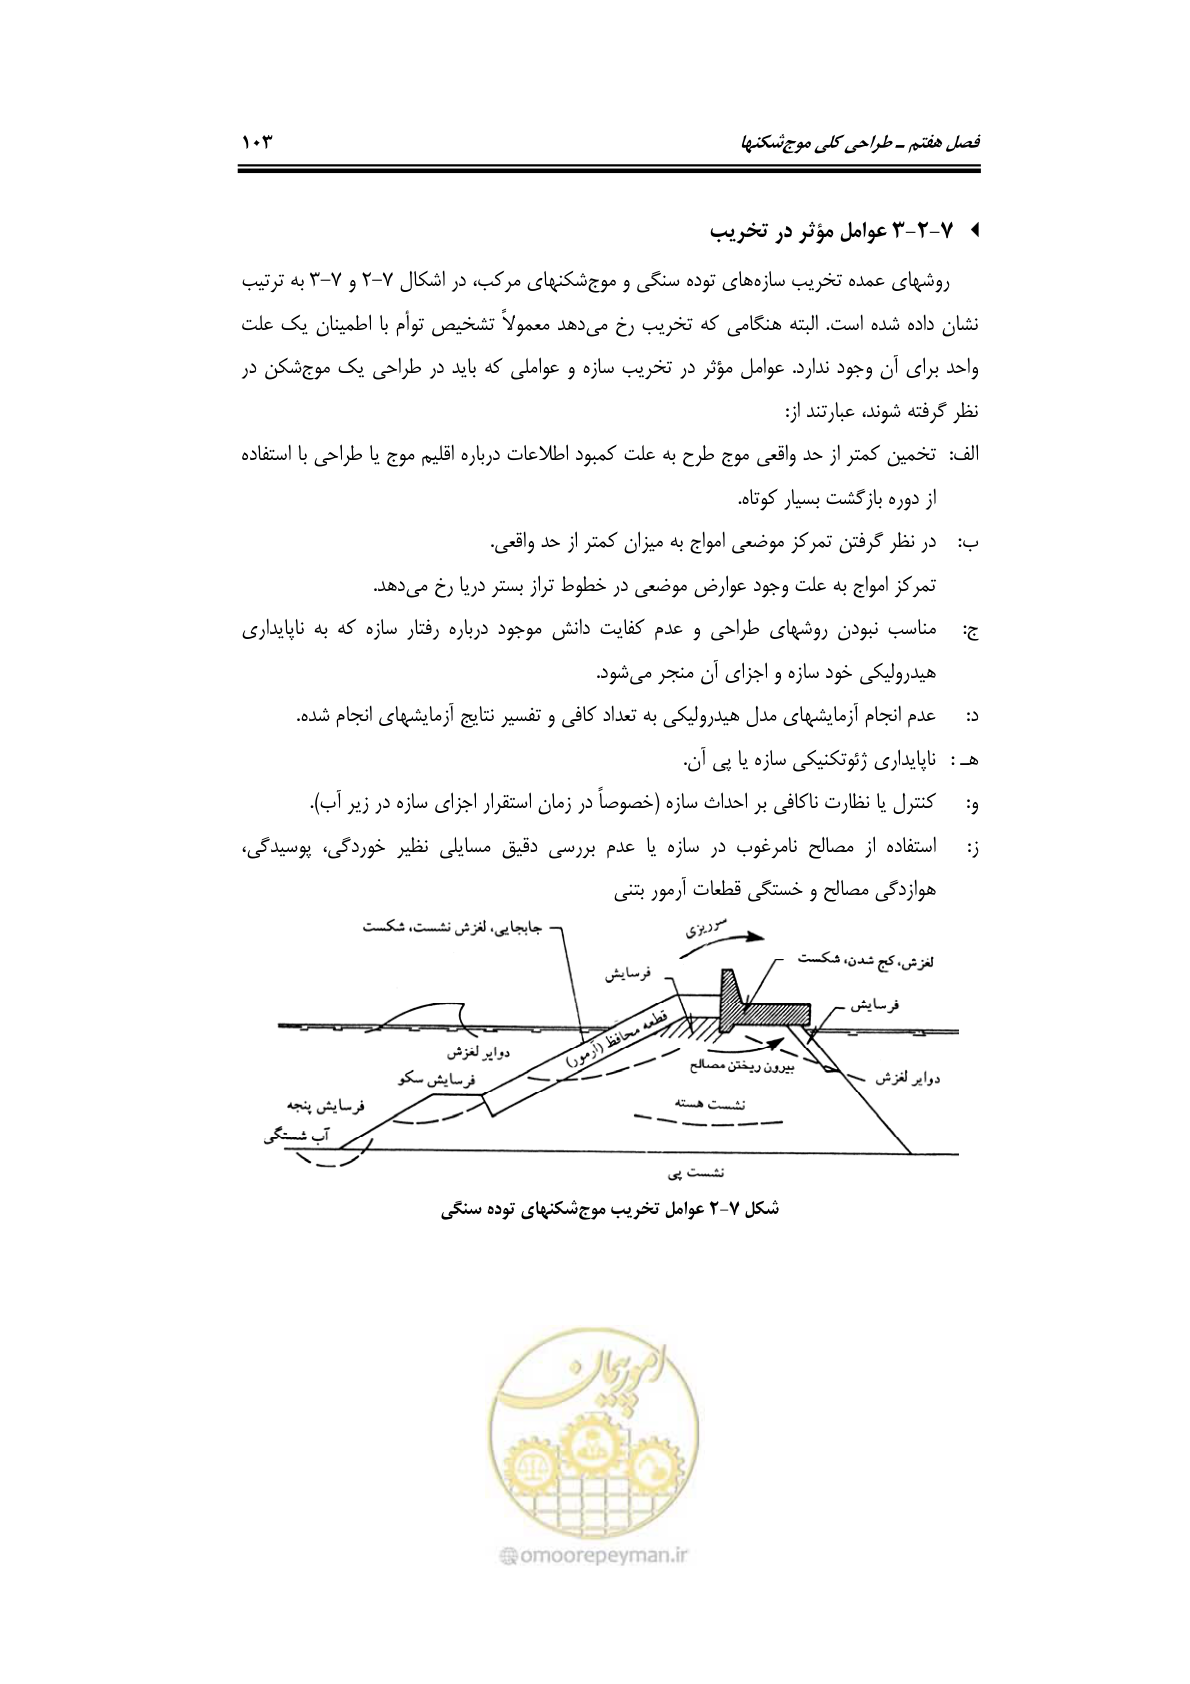 فصل هفتم ـ طراحی کلی موج‌شکنها ۱۰۳
۷-۲-۳ عوامل مؤثر در تخریب
روشهای عمده تخریب سازه‌های توده سنگی و موج‌شکنهای مرکب، در اشکال ۷-۲ و ۷-۳ به ترتیب
نشان داده شده است. البته هنگامی که تخریب رخ می‌دهد معمولاً تشخیص توأم با اطمینان یک علت
واحد برای آن وجود ندارد. عوامل مؤثر در تخریب سازه و عواملی که باید در طراحی یک موج‌شکن در
نظر گرفته شوند، عبارتند از:
الف: تخمین کمتر از حد واقعی موج طرح به علت کمبود اطلاعات درباره اقلیم موج یا طراحی با استفاده
از دوره بازگشت بسیار کوتاه.
ب: در نظر گرفتن تمرکز موضعی امواج به میزان کمتر از حد واقعی.
تمرکز امواج به علت وجود عوارض موضعی در خطوط تراز بستر دریا رخ می‌دهد.
ج: مناسب نبودن روشهای طراحی و عدم کفایت دانش موجود درباره رفتار سازه که به ناپایداری
هیدرولیکی خود سازه و اجزای آن منجر می‌شود.
د: عدم انجام آزمایشهای مدل هیدرولیکی به تعداد کافی و تفسیر نتایج آزمایشهای انجام شده.
هـ : ناپایداری ژئوتکنیکی سازه یا پی آن.
و: کنترل یا نظارت ناکافی بر احداث سازه (خصوصاً در زمان استقرار اجزای سازه در زیر آب).
ز: استفاده از مصالح نامرغوب در سازه یا عدم بررسی دقیق مسایلی نظیر خوردگی، پوسیدگی،
هوازدگی مصالح و خستگی قطعات آرمور بتنی
سرریزی
جابجایی، لغزش نشست، شکست
لغزش، کج شدن، شکست
فرسایش
فرسایش
قطعه محافظ (آرمور)
دوایر لغزش
بیرون ریختن مصالح
دوایر لغزش
فرسایش سکو
نشست هسته
فرسایش پنجه
آب شستگی
نشست پی
شکل ۷-۲ عوامل تخریب موج‌شکنهای توده سنگی
امور پیمان
@omoorepeyman.ir